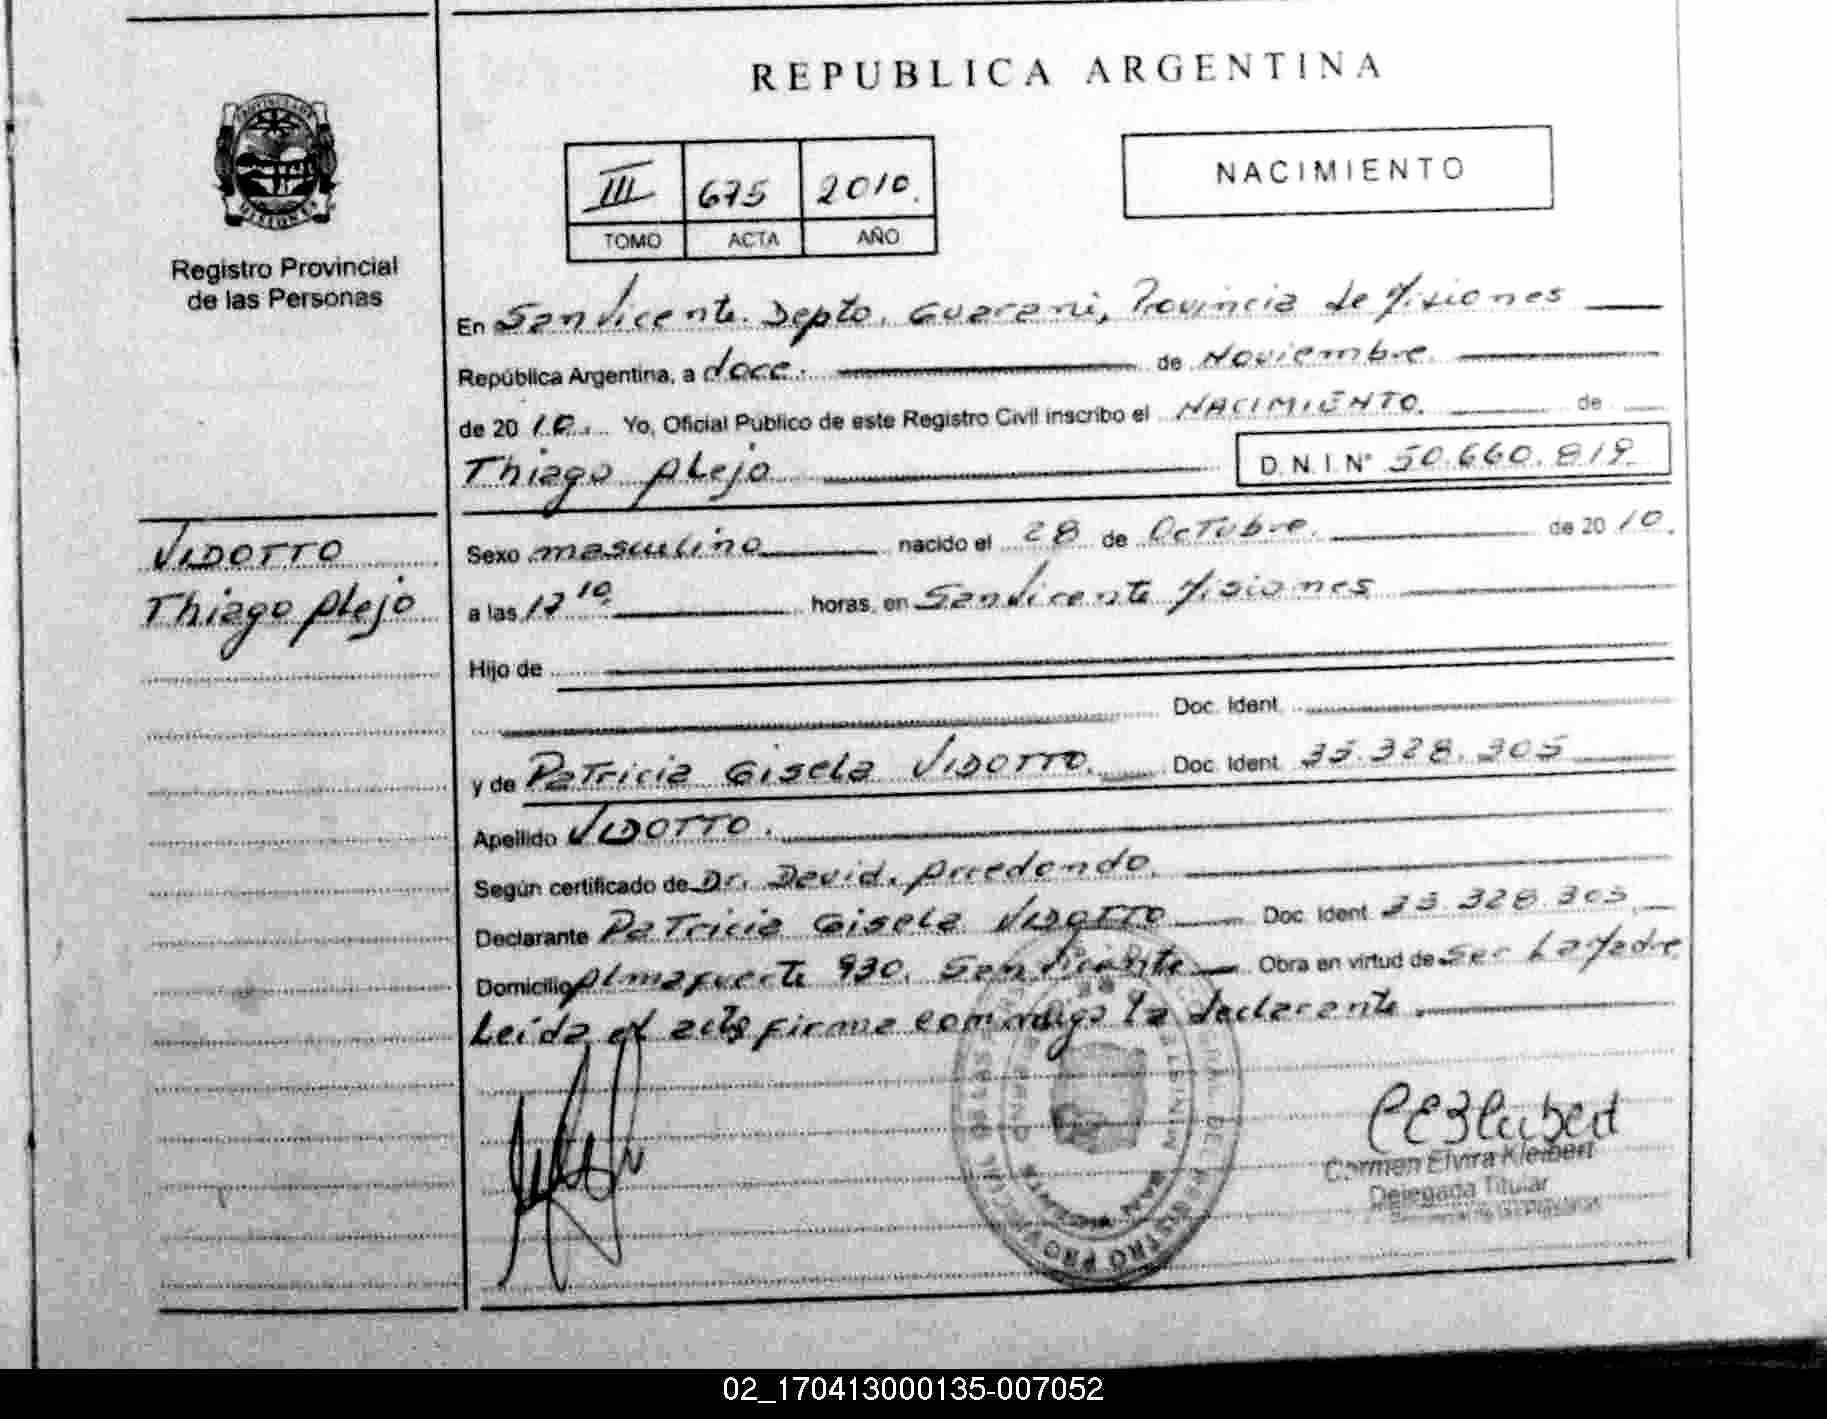 REPUBLICA ARGENTINA
PROVINCIA DE
MISIONES
Registro Provincial
de las Personas
III 675 2010.
TOMO ACTA AÑO
NACIMIENTO
En San Vicente. Depto. Guarani, Provincia de Misiones
República Argentina, a doce. de Noviembre.
de 20 10. Yo, Oficial Público de este Registro Civil inscribo el NACIMIENTO. de
Thiago Alejo D.N.I. N° 50.660.819.
VIDOTTO
Thiago Alejo
Sexo masculino nacido el 28 de Octubre. de 20 10.
a las 17 10 horas, en San Vicente Misiones
Hijo de
Doc. Ident.
y de Patricia Gisela VIDOTTO. Doc. Ident. 33.328.305
Apellido VIDOTTO.
Según certificado de Dr. David. Arredondo.
Declarante Patricia Gisela VIDOTTO Doc. Ident. 33.328.305
Domicilio Almafuerte 930. San Vicente Obra en virtud de ser La Madre
Leída el acta firma conmigo la declarante.
Carmen Elvira Kleibert
Delegada Titular
02_170413000135-007052